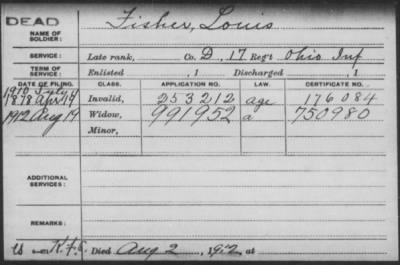 DEAD Fisher, Louis
NAME OF SOLDIER:
SERVICE: Late rank, Co. D, 17 Reg't Ohio Inf
TERM OF SERVICE: Enlisted , 1 Discharged , 1
DATE OF FILING. CLASS. APPLICATION NO. LAW. CERTIFICATE NO.
1910 July
1878 Apr 19 Invalid, 253212 age 176084
1912 Aug 19 Widow, 991952 a 750980
Minor,
ADDITIONAL SERVICES:
REMARKS:
Died Aug 2, 1912 at